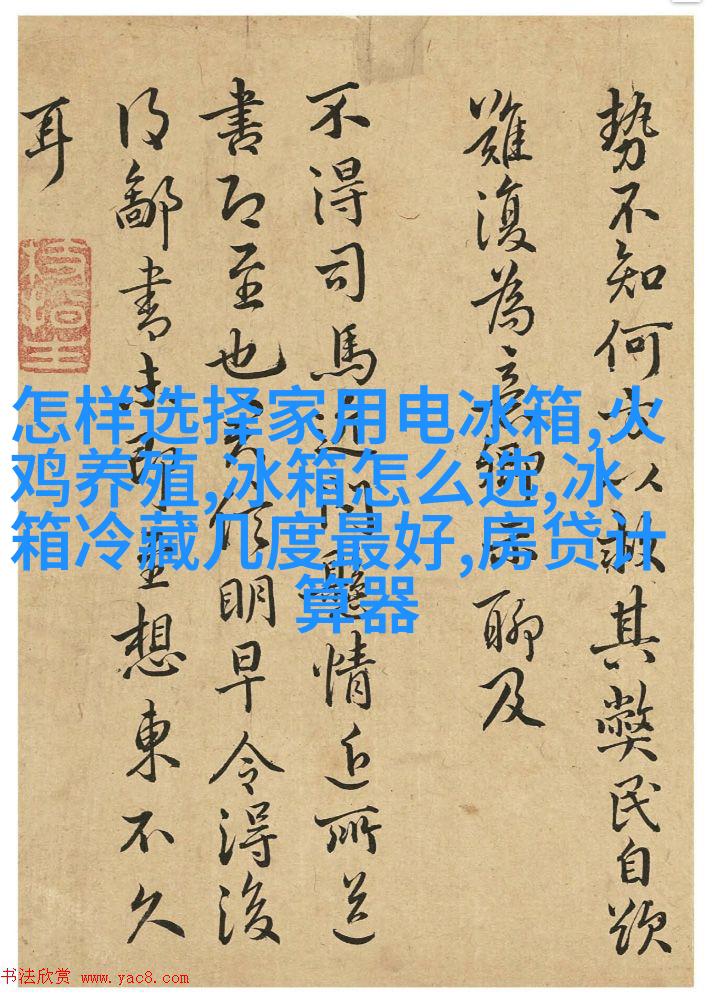 勢不知何以救其弊民自
難復為意卿聊及
不得司馬近問懸情近所送
書即至也明早令得後
得鄙書未耶重想東不久
耳
怎样选择家用电冰箱,火
鸡养殖,冰箱怎么选,冰
箱冷藏几度最好,房贷计
算器
书法欣赏 www.yac8.com